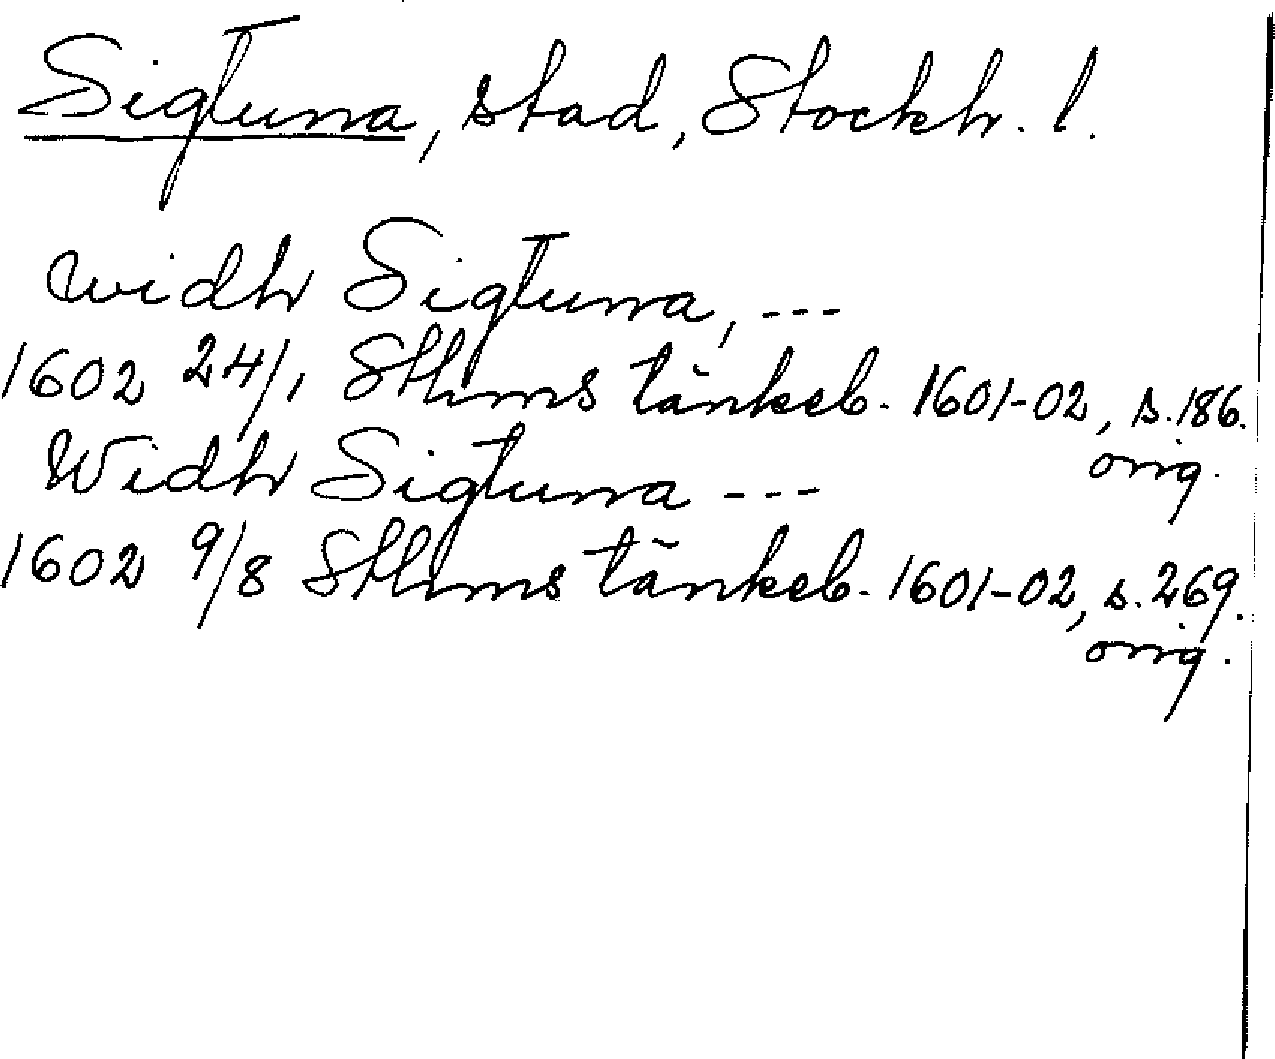 Sigtuna, stad, Stockh. l.
widh Sigtuna, ---
1602 24/1 Sthms tänkeb. 1601-02, s. 186.
orig.
Widh Sigtuna ---
1602 9/8 Sthms tänkeb. 1601-02, s. 269.
orig.